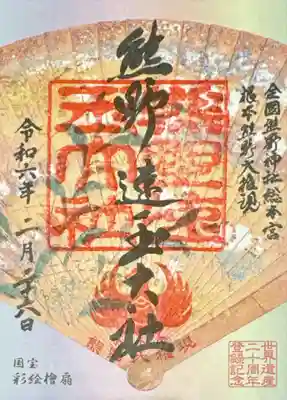 全国熊野神社総本宮
根本熊野大権現
熊野速玉大社
令和六年一月二十八日
国宝
彩絵檜扇
世界遺産
二十周年
登録記念